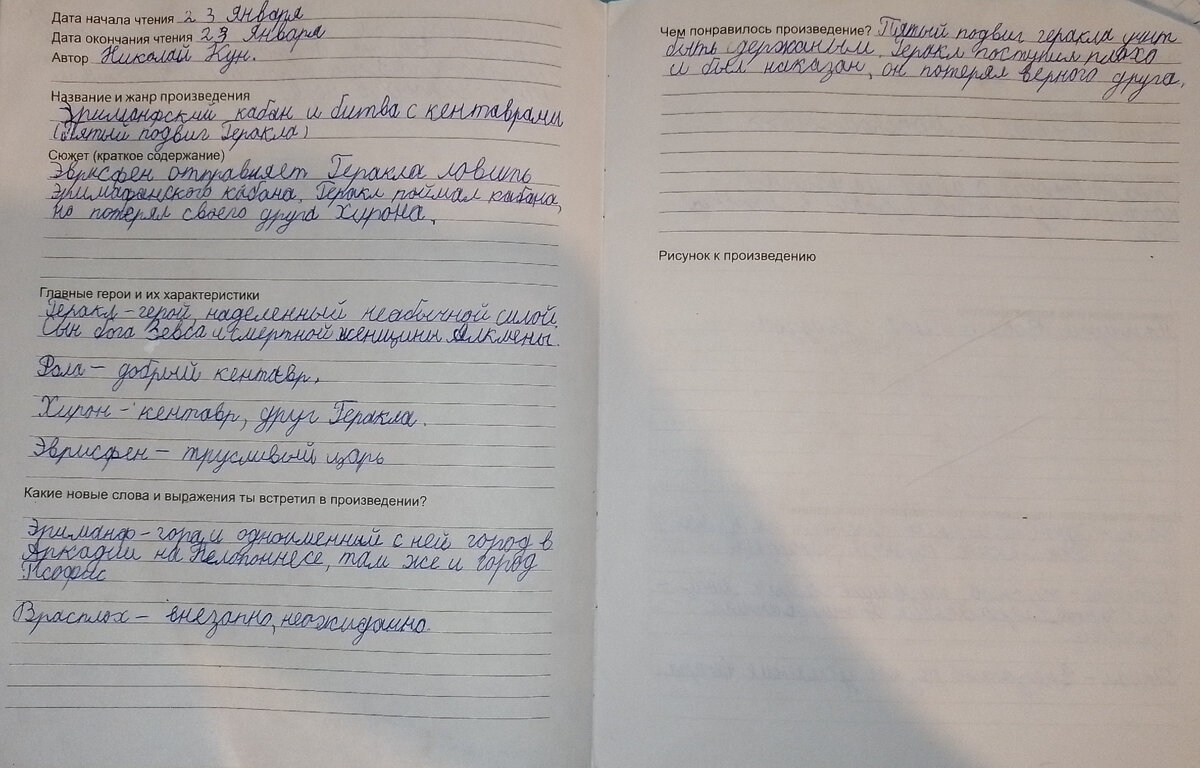 Дата начала чтения 23 Января
Дата окончания чтения 23 Января
Автор Николай Кун.
Название и жанр произведения
Эриманфский кабан и битва с кентаврами
(Пятый подвиг Геракла)
Сюжет (краткое содержание)
Эврисфен отправляет Геракла ловить
Эримафанского кабана. Геракл поймал кабана,
но потерял своего друга Хирона.
Главные герои и их характеристики
Геракл - герой, наделенный необычной силой.
Сын бога Зевса и смертной женщины Алкмены.
Фола - добрый кентавр.
Хирон - кентавр, друг Геракла.
Эврисфен - трусливый царь
Какие новые слова и выражения ты встретил в произведении?
Эриманф - гора, и одноименный с ней город в
Аркадии на Пелопоннесе, там же и город
Псофис
Врасплох - внезапно, неожиданно.
Чем понравилось произведение? Пятый подвиг геракла учит
быть сдержаным. Геракл поступил плохо
и был наказан, он потерял верного друга.
Рисунок к произведению